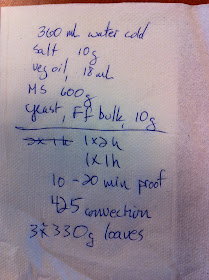 360 ml water cold
salt 10g
veg oil, 18 ml
MS 600g
yeast, FF bulk, 10g
2x 1h 1x2h
1x1h
10 - 20 min proof
425 convection
3x330g loaves